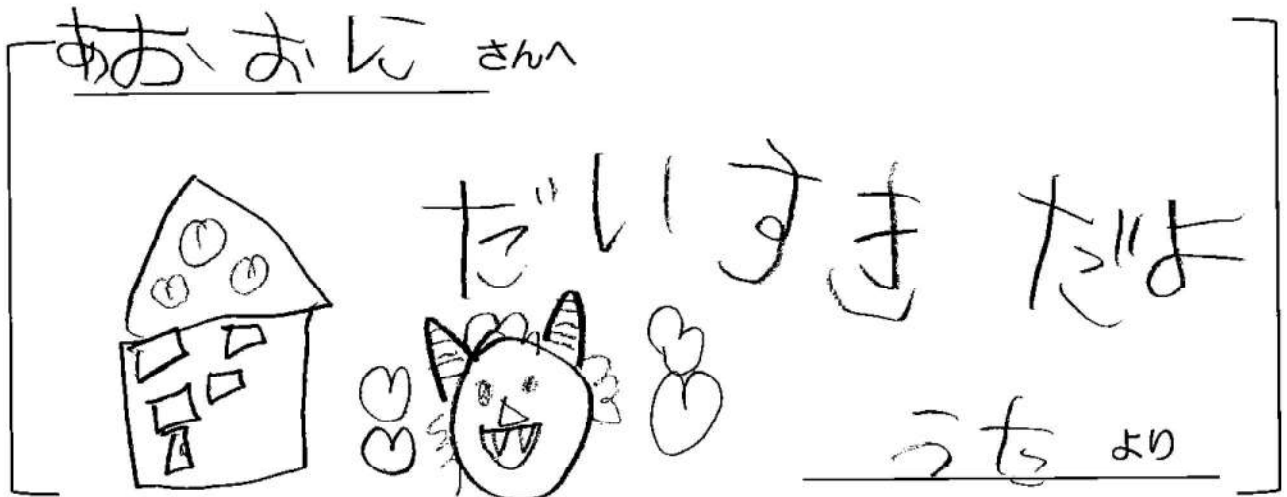 あおおにさんへ
だいすきだよ
うたより